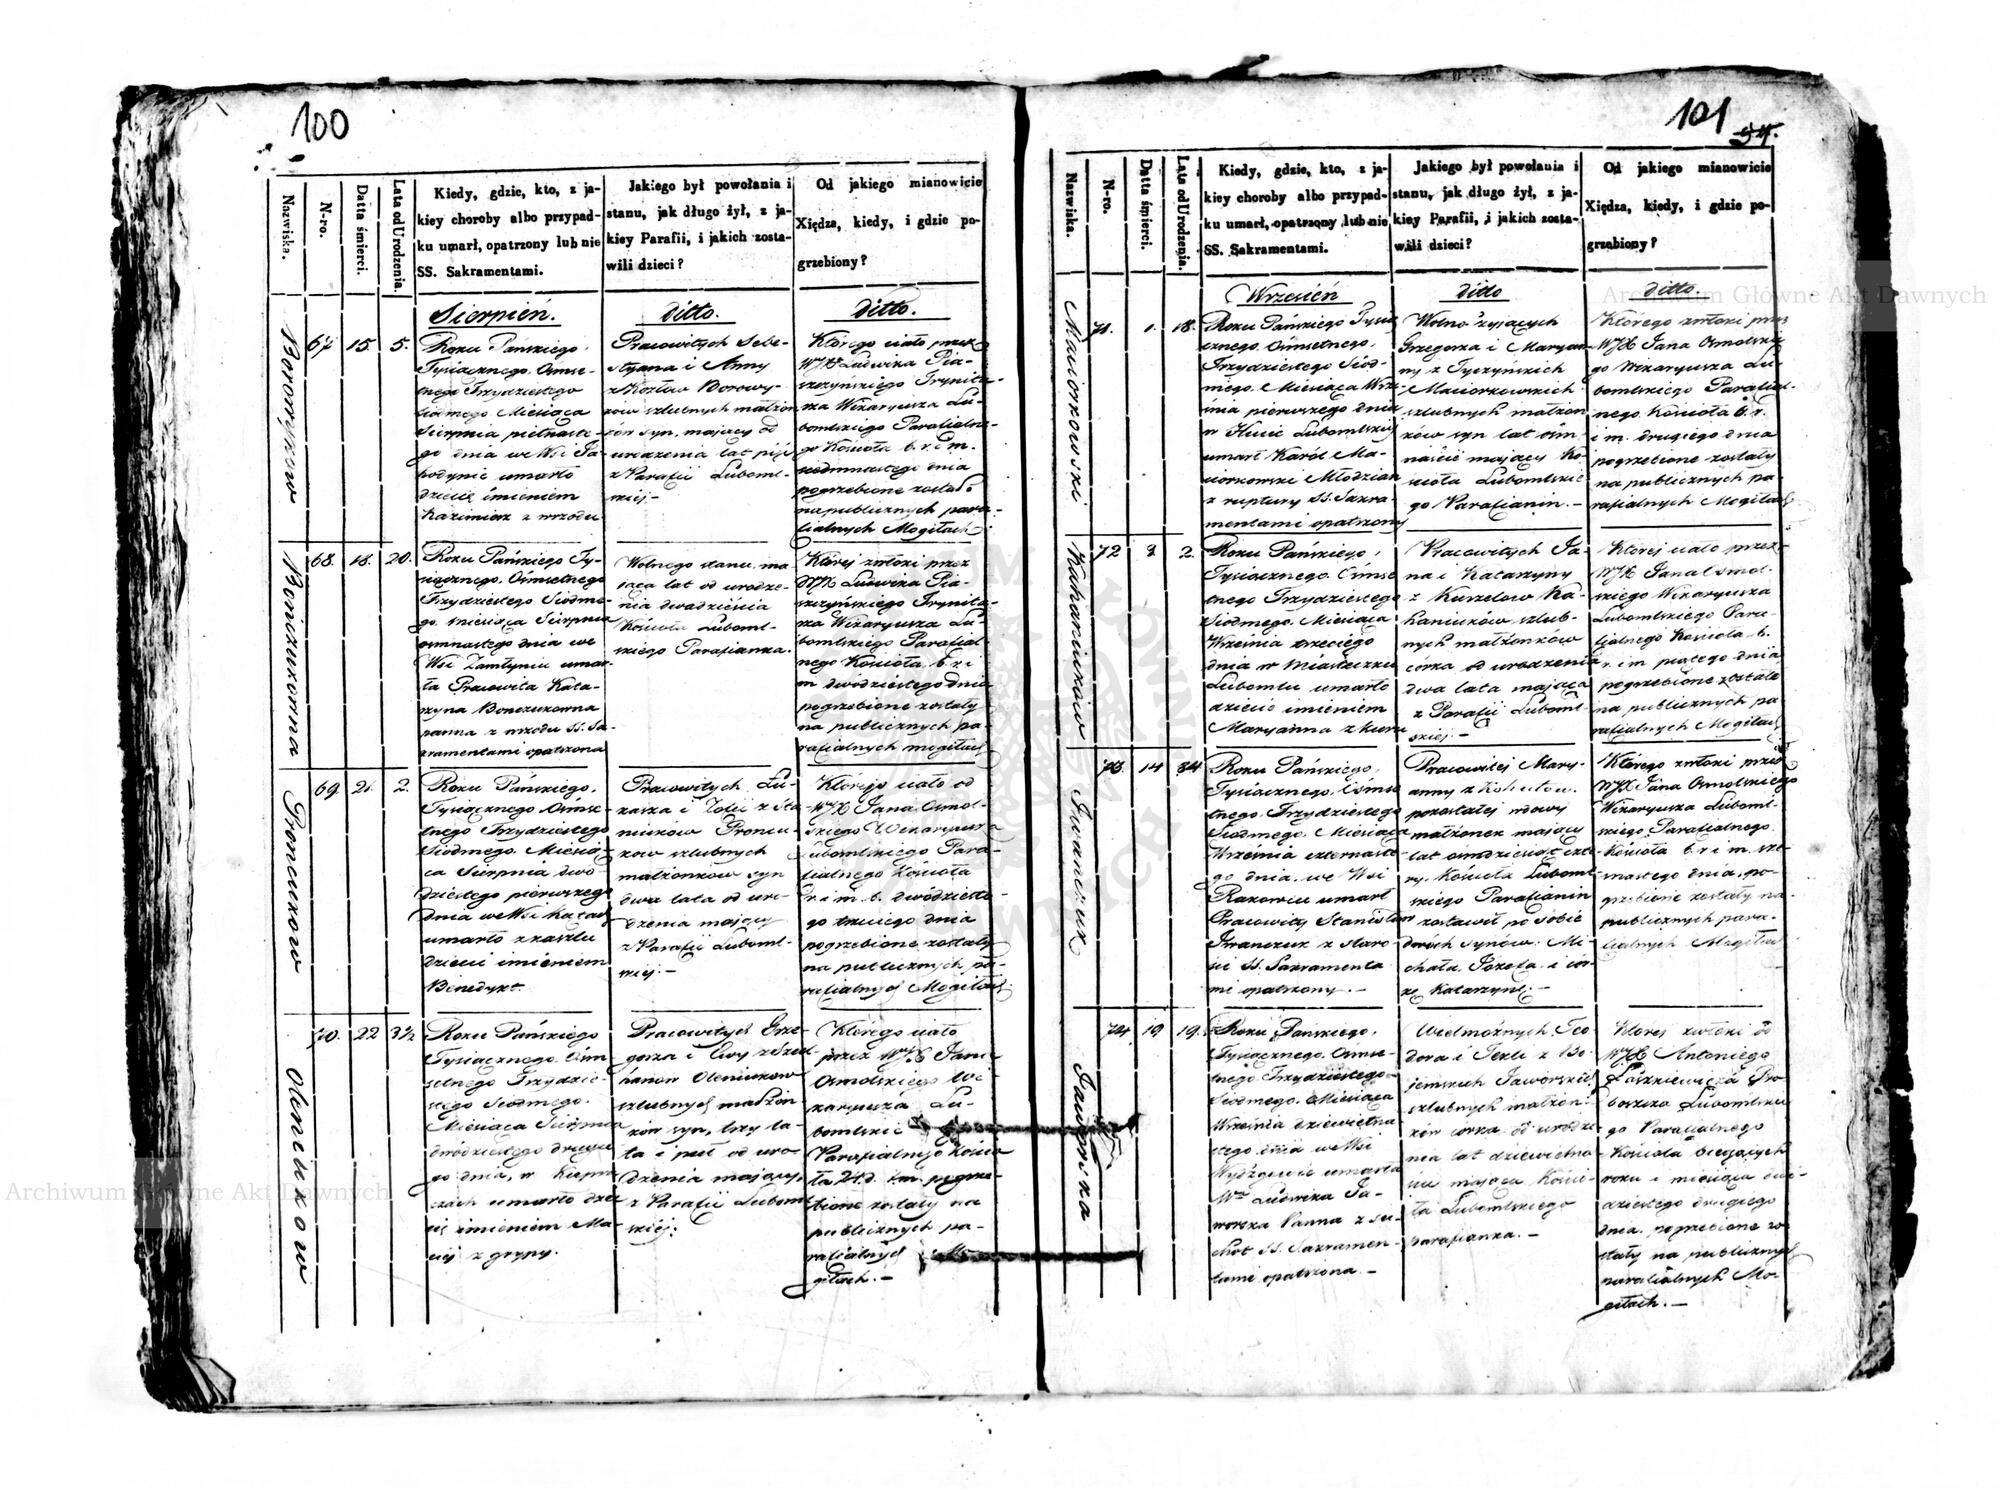 100
Nazwiska.
N-ro.
Datta śmierci.
Lata od Urodzenia.
Kiedy, gdzie, kto, z ja-
kiey choroby albo przypad-
ku umarł, opatrzony lub nie
SS. Sakramentami.
Jakiego był powołania i
stanu, jak długo żył, z ja-
kiey Parafii, i jakich zosta-
wili dzieci?
Od jakiego mianowicie
Xiędza, kiedy, i gdzie po-
grzebiony?
Sierpień.
ditto.
ditto.
67
15.
5.
Roku Pańskiego,
Tysiącznego Ośmse-
tnego Trzydziestego
siódmego Miesiąca
Sierpnia piętnaste-
go dnia we Wsi
umarło
dziecie imieniem
Kazimierz z wrzodu
Pracowitych Seba-
styana i Anny
z Kozłów
ków szlubnych małżon
ków syn, maiący od
urodzenia lat pięć
z Parafii Luboml-
skiej –
Którego ciało przez
WJX Ludwika Pia-
szczyńskiego Trynita-
rza Wikaryusza Lu-
bomlskiego Parafialne-
go Kościoła b. r. i m.
siedmnastego dnia
pogrzebione zostało
na publicznych para-
fialnych Mogiłach
68.
18.
20.
Roku Pańskiego Ty-
siącznego Ośmsetnego
Trzydziestego Siódme-
go, miesiąca Sierpnia
ośmnastego dnia we
Wsi Zamłyniu umar-
ła Pracowita Kata-
rzyna
panna z wrzodu SS. Sa-
kramentami opatrzona
Wolnego stanu, ma
iąca lat od urodze-
nia dwadzieścia
Kościoła Luboml-
skiego Parafianka.
Której zwłoki przez
WJX Ludwika Pia-
szczyńskiego Trynita-
rza Wikaryusza Lu-
bomlskiego Parafial
nego Kościoła b. r. i
m dwódziestego dnia
pogrzebione zostały
na publicznych pa-
rafialnych mogiłach
69.
21.
2.
Roku Pańskiego,
Tysiącznego Ośmse
tnego Trzydziestego
Siódmego, Miesią-
ca Sierpnia dwó-
dziestego pierwszego
dnia we Wsi
umarło z kaszlu
dziecie imieniem
Benedykt.
Pracowitych Łu-
kasza i Zofii z
ków szlubnych
małżonków syn
dwa lata od uro-
dzenia maiący
z Parafii Luboml-
skiej –
Którego ciało od
WJX Jana Osmol-
skiego Wikaryusza
Lubomlskiego Para-
fialnego Kościoła
r. i m. b. dwódzieste-
go trzeciego dnia
pogrzebione zostały
na publicznych pa-
rafialnych Mogiłach
70.
22
3½
Oleniuków
Roku Pańskiego
Tysiącznego Ośm
setnego Trzydzie-
stego Siódmego,
Miesiąca Sierpnia
dwódziestego drugie
go dnia, w
umarło dzie
cię imieniem Ma-
ciej z grypy.
Pracowitych Grze-
gorza i Ewy
Oleniuków
szlubnych małżon
ków syn, trzy la-
ta i puł od uro-
dzenia maiący,
z Parafii Luboml
skiej.
Którego ciało
przez WJX Jana
Osmolskiego Wi-
karyusza Lu-
bomlskie
Parafialnego Kościo
ła
bione zostały na
publicznych pa-
rafialnych Mo-
giłach. –
101
54.
Nazwiska.
N-ro.
Datta śmierci.
Lata od Urodzenia.
Kiedy, gdzie, kto, z ja-
kiey choroby albo przypad-
ku umarł, opatrzony lub nie
SS. Sakramentami.
Jakiego był powołania i
stanu, jak długo żył, z ja-
kiey Parafii, i jakich zosta-
wili dzieci?
Od jakiego mianowicie
Xiędza, kiedy, i gdzie po-
grzebiony?
Wrzesień
ditto
ditto.
Maciorkowski
71.
1.
18.
Roku Pańskiego Tysią
cznego, Ośmsetnego,
Trzydziestego Siód-
mego, Miesiąca Wrze-
śnia pierwszego dnia
w Hucie Lubomlskiej
umarł Karól Ma-
ciorkowski Młodzian
z ruptury SS. Sakra-
mentami opatrzony
Wolno żyjących
Grzegorza i Maryan
ny z Tyszyńskich
Maciorkowskich
szlubnych małżon
ków syn lat ośm
naście mający Ko-
ścioła Lubomlskie
go Parafianin. –
Którego zwłoki przez
WJX Jana Osmolskie
go Wikaryusza Lu-
bomlskiego Parafial-
nego, Kościoła b. r.
i m. drugiego dnia
pogrzebione zostały
na publicznych pa-
rafialnych Mogiłach
Kahaniuków
72
3
2.
Roku Pańskiego,
Tysiącznego, Ośmse
tnego Trzydziestego
Siódmego, Miesiąca
Września trzeciego
dnia w Miasteczku
Lubomlu umarło
dziecie imieniem
Maryanna z kuru
Pracowitych Ja-
na i Katarzyny
z Kurzelow Ka-
haniuków, szlub-
nych małżonków
córka od urodzenia
dwa lata mająca
z Parafii Luboml-
skiej. –
Której ciało przez
WJX Jana Osmol-
skiego Wikaryusza
Lubomlskiego Para-
fialnego Kościoła, b.
r. i m piątego dnia
pogrzebione zostało
na publicznych pa-
rafialnych Mogiłach
Iwanczuk
73.
14
84
Roku Pańskiego,
Tysiącznego, Ośmse
tnego, Trzydziestego
Siódmego, Miesiąca
Września czternaste-
go dnia, we Wsi
umarł
Pracowity Stanisław
Iwanczuk z staro
ści SS. Sakramenta
mi opatrzony. –
Pracowitej Mary-
anny z
pozostałej wdowy
małżonek mający
lat ośmdziesiąt czte
ry, Kościoła Luboml
skiego Parafianin
zostawił po sobie
dwóch synów: Mi-
chała, Józefa i cór-
kę Katarzynę. –
Którego zwłoki przez
WJX Jana Osmolskiego
Wikaryusza Luboml-
skiego, Parafialnego
Kościoła b. r. i m. szes-
nastego dnia, po-
grzebione zostały na
publicznych para-
fialnych Mogiłach
Jaworska
74.
19
19.
Roku Pańskiego,
Tysiącznego, Ośmse-
tnego, Trzydziestego
Siódmego, Miesiąca
Września dziewiętna
stego dnia we Wsi
umarła
Wa Ludwika Ja-
worska Panna z su-
chot SS. Sakramen-
tami opatrzona. –
Wielmożnych Teo
dora i Tekli z Bo-
jemskich Jaworskich
szlubnych małżon-
ków córka od urodze
nia lat dziewietna-
ście mająca Kościo-
ła Lubomlskiego
parafianka. –
Której zwłoki od
WJX Antoniego
Łaszkiewicza Pro-
boszcza Lubomlskie
go Parafialnego
Kościoła bieżących
roku i miesiąca dwó-
dziestego drugiego
dnia, pogrzebione zo-
stały na publicznych
parafialnych Mo-
giłach. –
Archiwum Główne Akt Dawnych
Archiwum Główne Akt Dawnych